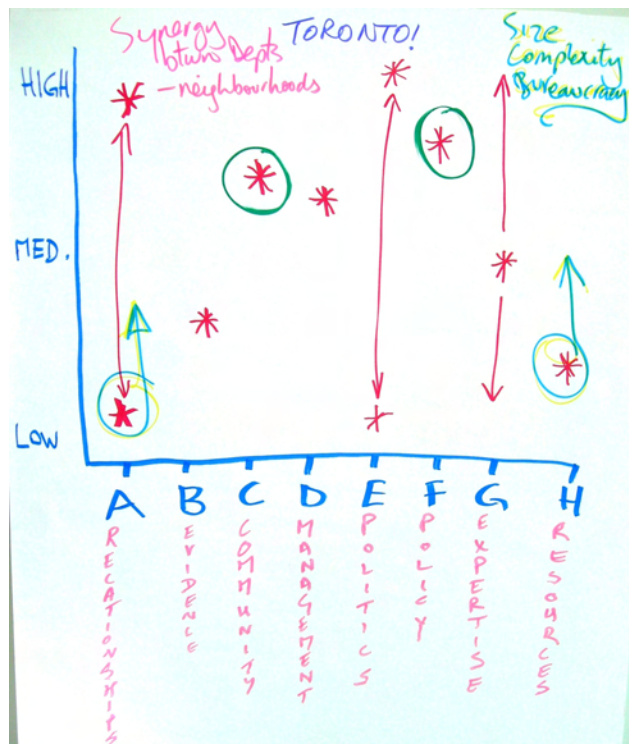 Synergy
btwn Depts
- neighbourhoods
TORONTO!
Size
Complexity
Bureaucracy
HIGH
MED.
LOW
A B C D E F G H
RELATIONSHIPS
EVIDENCE
COMMUNITY
MANAGEMENT
POLITICS
POLICY
EXPERTISE
RESOURCES